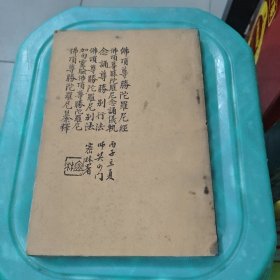 佛頂尊勝陀羅尼經
佛頂尊勝陀羅尼念誦儀軌
念誦尊勝別行法
佛頂尊勝陀羅尼別法
如句靈驗佛頂尊勝陀羅尼
佛頂尊勝陀羅尼集釋
丙子立夏
師吴の门
密林署